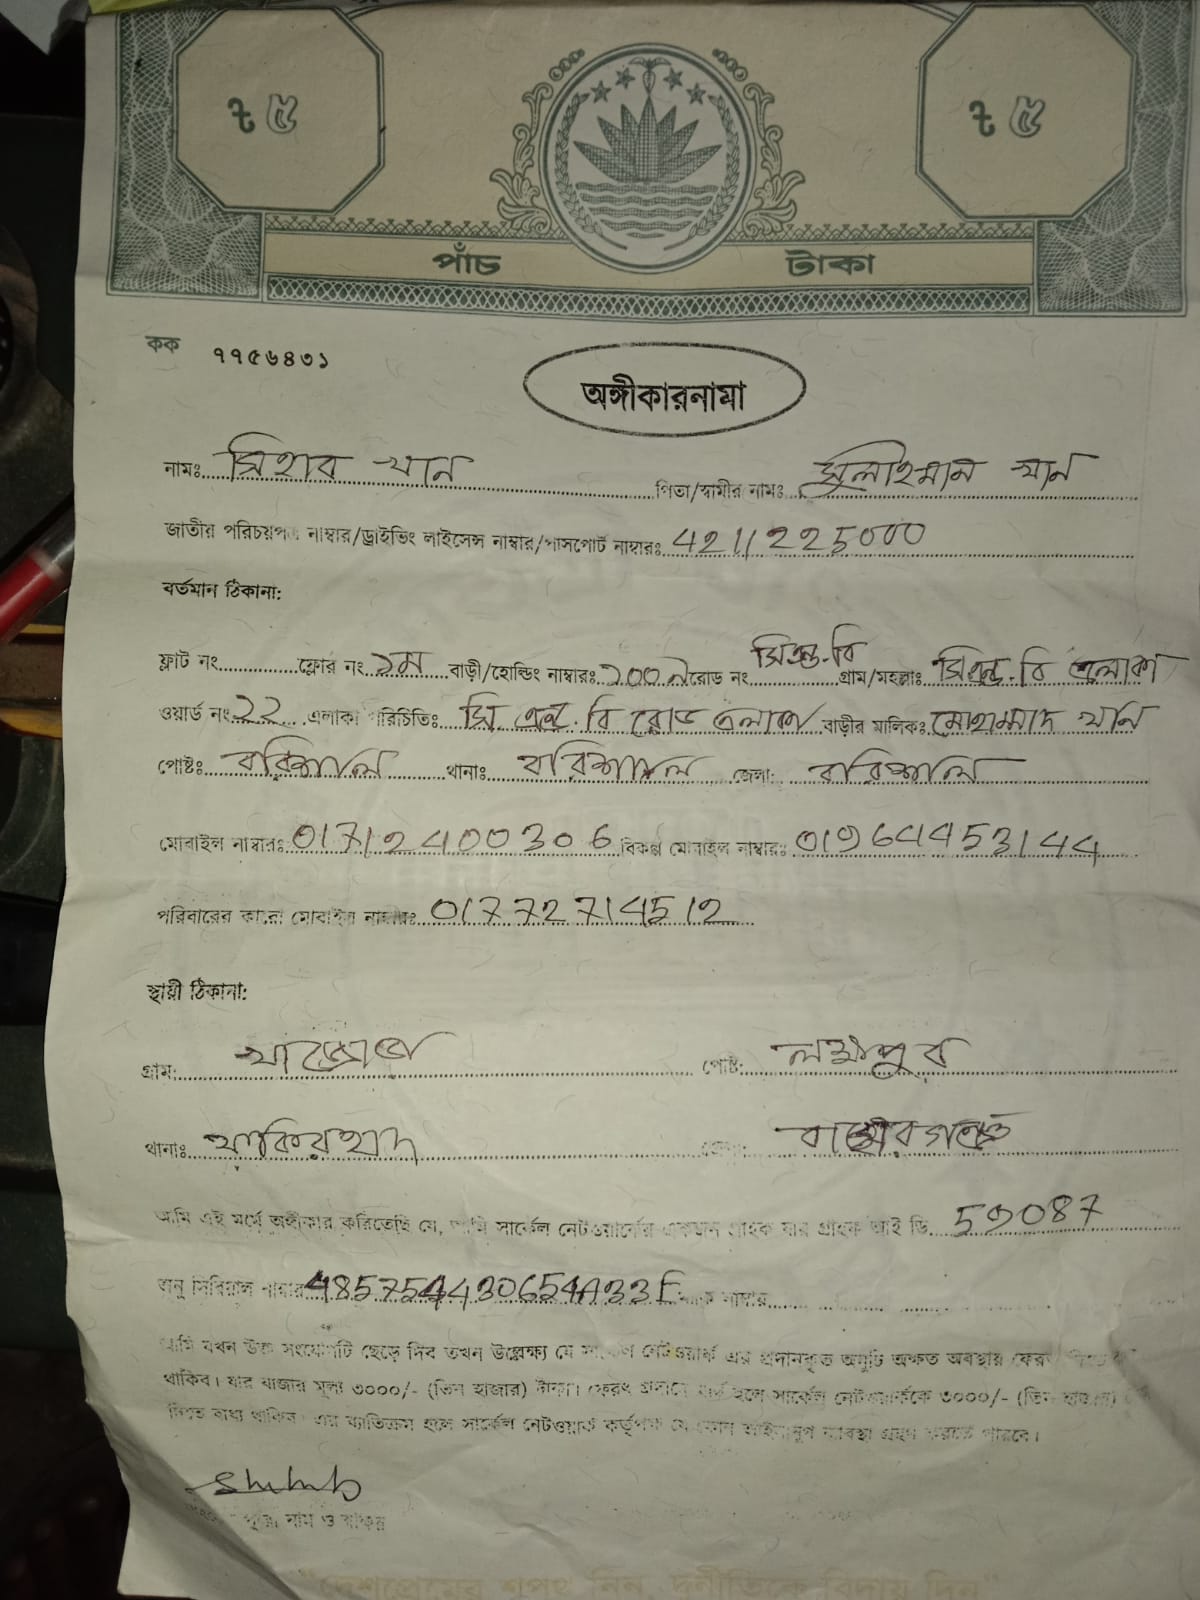 ৳ ৫ ৳ ৫
পাঁচ টাকা
কক ৭৭৫৬৪৩১
অঙ্গীকারনামা
নামঃ সিহাব খান পিতা/স্বামীর নামঃ সুলাইমান খান
জাতীয় পরিচয়পত্র নাম্বার/ড্রাইভিং লাইসেন্স নাম্বার/পাসপোর্ট নাম্বারঃ 4211225000
বর্তমান ঠিকানা:
ফ্লাট নং ফ্লোর নং ১ম বাড়ী/হোল্ডিং নাম্বারঃ রোড নং সিএন্ড.বি গ্রাম/মহল্লাঃ সিএন্ড.বি এলাকা
ওয়ার্ড নং ২২ এলাকা পরিচিতিঃ সি এন্ড.বি রোড এলাকা বাড়ীর মালিকঃ মোহাম্মাদ খান
পোষ্টঃ বরিশাল থানাঃ বরিশাল জেলা: বরিশাল
মোবাইল নাম্বারঃ 01712400306 বিকল্প মোবাইল নাম্বারঃ
পরিবারের কারো মোবাইল নাম্বারঃ 01772714512
স্থায়ী ঠিকানা:
গ্রাম: পোষ্ট:
থানাঃ জেলা:
আমি এই মর্মে অঙ্গীকার করিতেছি যে, আমি সার্কেল নেটওয়ার্কের একজন গ্রাহক যার গ্রাহক আই ডি.
অনু সিরিয়াল নাম্বার ম্যাক নাম্বার
আমি যখন উক্ত সংযোগটি ছেড়ে দিব তখন উল্লেক্ষ্য যে সার্কেল নেটওয়ার্ক এর প্রদানকৃত অনুটি অক্ষত অবস্থায় ফেরৎ
থাকিব। যার বাজার মূল্য ৩০০০/- (তিন হাজার) টাকা। ফেরৎ প্রদানে ব্যর্থ হলে সার্কেল নেটওয়ার্ককে ৩০০০/- (তিন হাজার)
দিতে বাধ্য থাকিব। এর ব্যাতিক্রম হলে সার্কেল নেটওয়ার্ক কর্তৃপক্ষ যে কোন আইনানুগ ব্যবস্থা গ্রহণ করতে পারবে।
Shihab
নাম ও স্বাক্ষর
"দেশপ্রেমের শপথ নিন, দুর্নীতিকে বিদায় দিন"